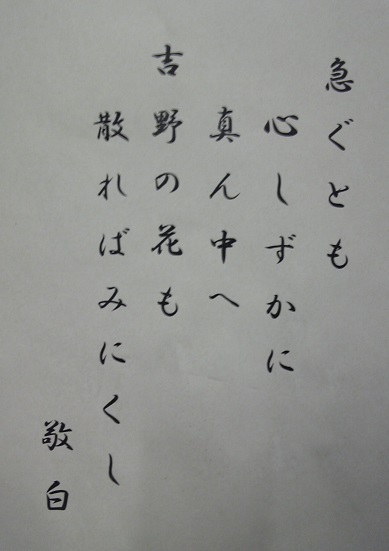 急ぐとも
心しずかに
真ん中へ
吉野の花も
散ればみにくし
敬白